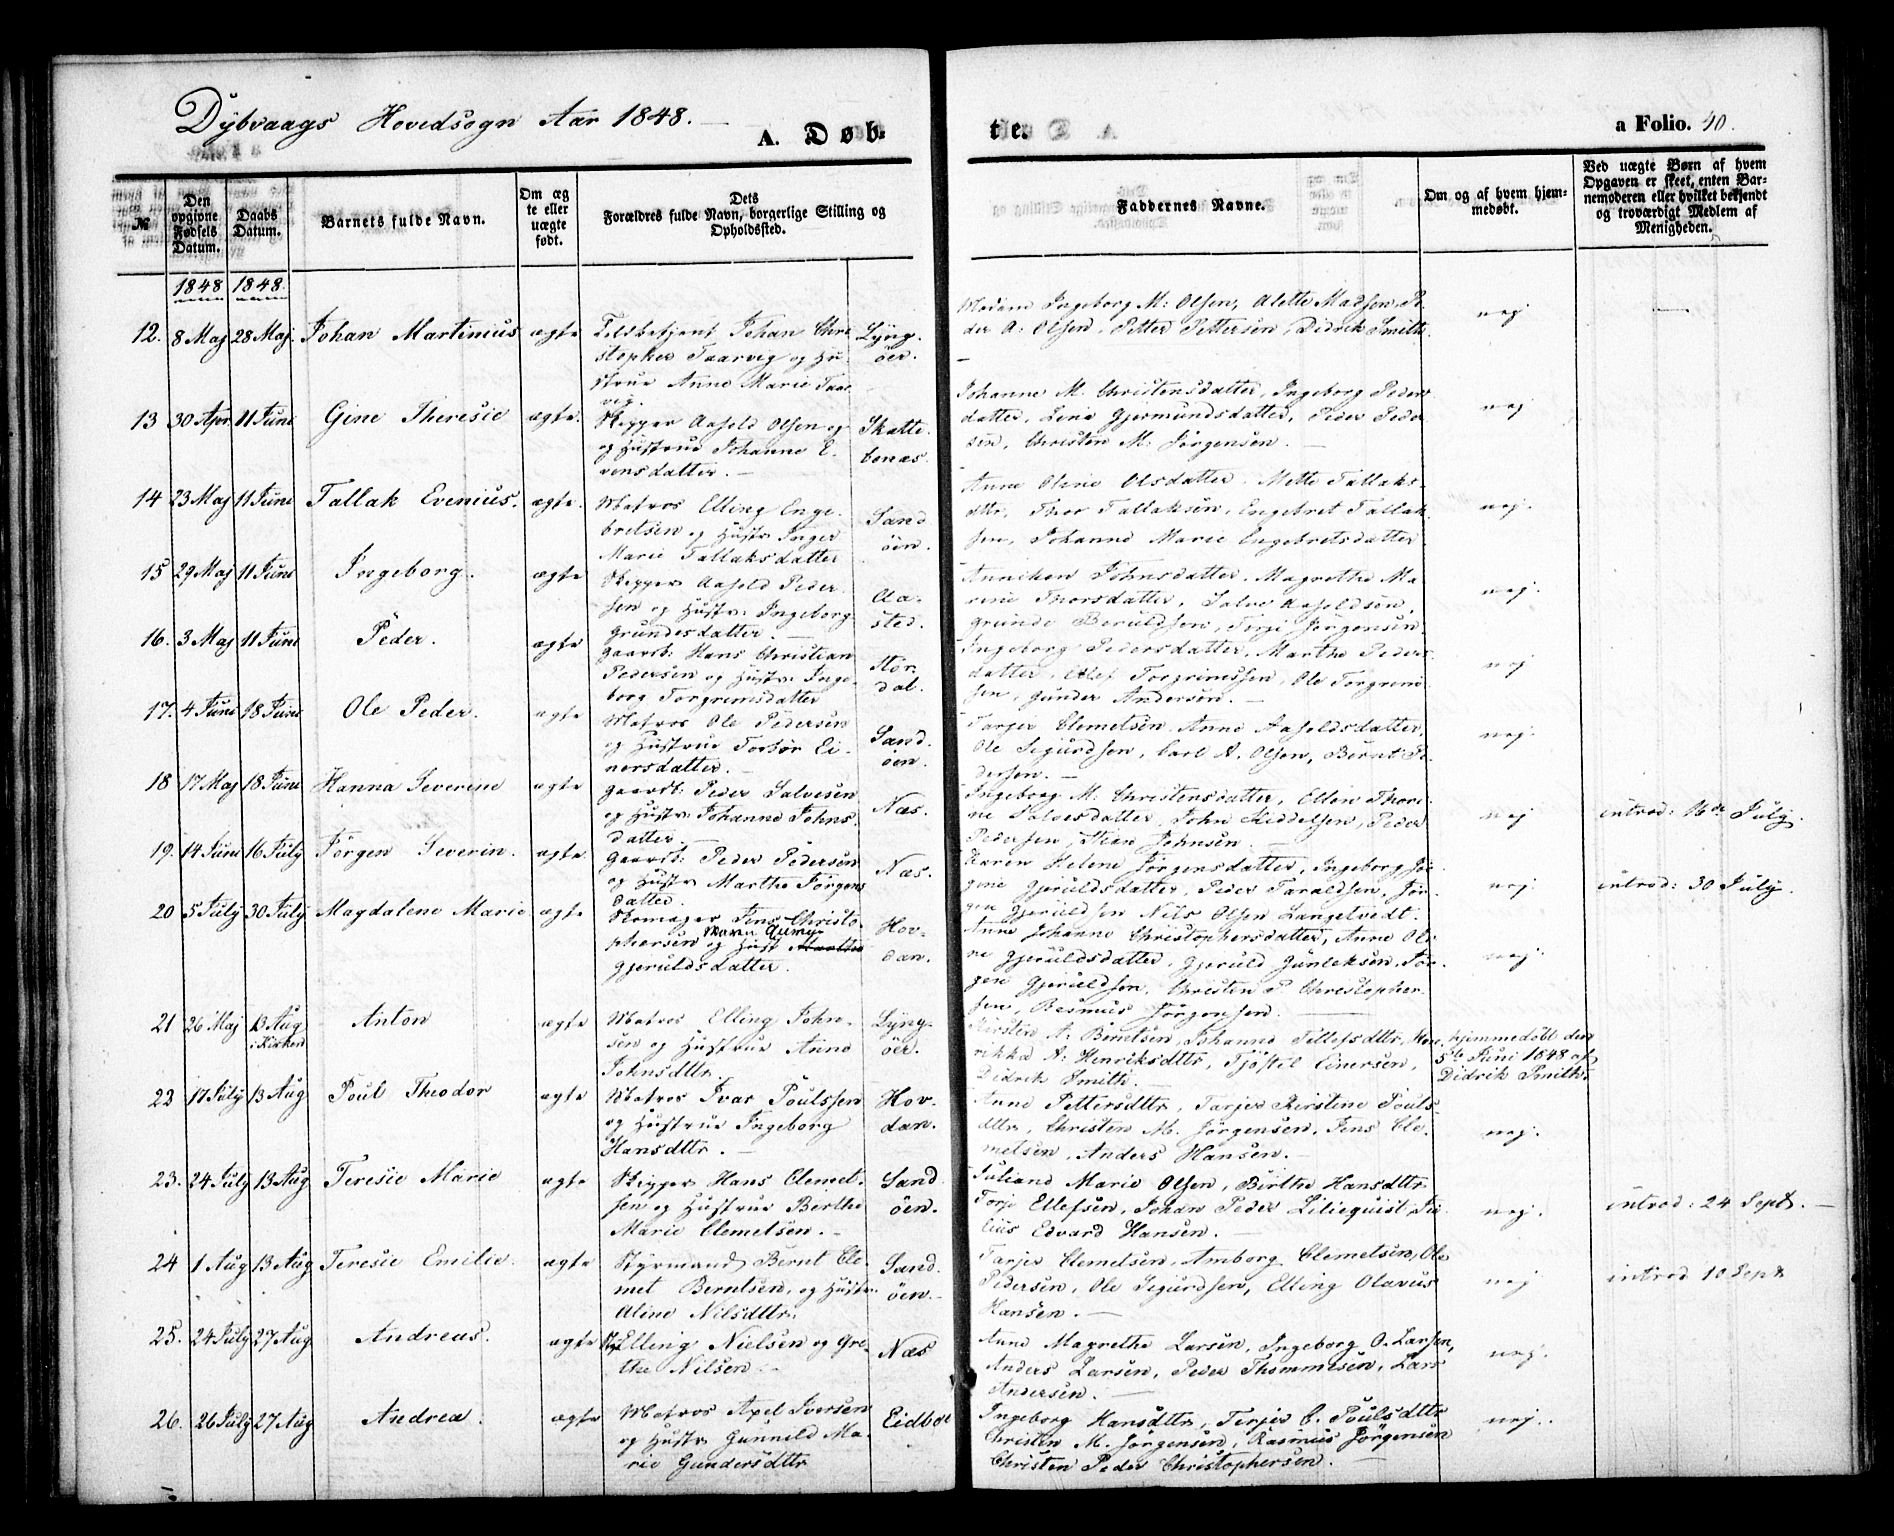 Dybvaags Hovedsogn Aar 1848.
A. Døb-
te.
a Folio. 40.
№
Den opgivne Fødsels Datum.
Daabs Datum.
Barnets fulde Navn.
Om ægte eller uægte født.
Dets Forældres fulde Navn, borgerlige Stilling og Opholdssted.
Faddernes Navne.
Om og af hvem hjemmedøbt.
Ved uægte Børn af hvem Opgaven er skeet, enten Barnemoderen eller hvilket bekjendt og troværdigt Medlem af Menigheden.
1848 1848.
12. 8 Maj 28 Maj. Johan Martinius ægte Toldbetjent Johan Chri
stopher Taarvig og Hu-
strue Anne Marie Taar
vig.
Lyng-
öer.
Madame Ingeborg M: Olsen, Alette Madsen, Pe
der A: Olsen, Petter Pettersen, Didrik Smith.
nej
13 30 Apr. 11 Juni Gine Theresie ægte. Skipper Aasold Olsen og
og Hustrue Johanne E-
vensdatter.
Skatte-
benæs.
Johanne M. Christensdatter, Ingeborg Peders
datter, Lena Gjermundsdatter, Peder Peder
sen, Christen M: Jörgensen.
nej
14 23 Maj 11 Juni Tallak Evenius. ægte. Matros Elling Enge-
bretsen og Hustr: Inger
Marie Tallaksdatter
Sand
öen.
Anne Olene Olsdatter. Mette Tallaks-
dtr, Thor Tallaksen, Engebret Tallak
sen, Johanne Marie Engebretsdatter.
nej.
15 29 Maj 11 Juni Ingeborg. ægte Skipper Aasold Peder
sen og Hustr: Ingeborg
Grundesdatter.
Aa-
sted.
Anniken Johnsdatter. Magrethe Ma
rene Thorsdatter, Salve Aasoldsen,
Grunde Beruldsen, Terje Jörgensen.
nej.
16. 3 Maj 11 Juni Peder. ægte Gaardb: Hans Christian
Pedersen og Hustr: Inge-
borg Torgrimsdatter
Nör-
dal.
Ingeborg Pedersdatter, Marthe Peders
datter, Ellef Torgrimssen, Ole Torgrim
sen, Gunder Andersen.
nej
17. 4 Juni 18 Juni Ole Peder. ægte Matros Ole Pedersen
og Hustrue Torbör Ei-
nersdatter.
Sand-
öen.
Tarjer Clemetsen Anne Aasoldsdatter
Ole Sigurdsen, Carl A. Olsen, Bernt Pe-
dersen.
nej.
18 17 Maj 18 Juni Hanna Severine ægte Gaardb: Peder Salvesen
og Hustr: Johanne Johns-
datter
Næs.
Ingeborg M. Christensdatter, Ellen Thore-
ne Salvesdatter, John Kiddelsen, Peder
Pedersen, Stian Johnsen.
nej
introd: 16de July.
19. 14 Juni 16 July Jörgen Severin. ægte Gaardb: Peder Pedersen
og Hustr Marthe Jörgens
datter
Næs.
Karen Helene Jörgensdatter, Ingeborg Jör
gene Gjeruldsdatter, Peder Taraldsen, Jör-
gen Gjeruldsen Nils Olsen Langetvedt.
nej.
introd: 30 July.
20 5 July 30 July Magdalene Marie ægte Skomager Jens Christo-
phersen og Hust Marthe
Gjeruldsdatter.
Hov-
dan.
Anne Johanne Christophersdatter, Anne Ole
ne Gjeruldsdatter, Gjeruld Gunleksen, Jör-
gen Gjeruldsen, Christen P Christopher-
sen, Rasmus Jörgensen.
nej.
21 26 Maj 13 Aug
i Kirken
Anton ægte Matros Elling John-
sen og Hustrue Anne
Johnsdtr.
Lyng-
öer.
Kirsten A: Berntsen, Johanne Tellefsdtr, Hen-
rikke A: Henriksdtr, Tjöstel Einersen,
Didrik Smith.
hjemmedöbt den
5te Juni 1848 af
Didrik Smith.
22 17 July 13 Aug Poul Theodor ægte Matros Ivar Poulssen
og Hustrue Ingeborg
Hansdtr.
Hov-
dan.
Anne Pettersdtr, Tarjer Kirstine Pouls-
dtr, Christen M. Jörgensen, Jens Cle-
metsen, Anders Hansen.
nej.
23. 24 July 13 Aug Teresie Marie ægte Skipper Hans Clemet-
sen og Hustrue Birthe
Marie Clemetsen.
Sand
öen.
Juliane Marie Olsen, Birthe Hansdtr
Torje Ellefsen, Johan Peder Liliequist, Ju-
lius Edvard Hansen.
nej.
introd: 24 Septb.
24 1 Aug 13 Aug Teresie Emilie. ægte Styrmand Bernt Cle-
met Berntsen, og Hustr:
Aline Nilsdtr.
Sand-
öen.
Tarjer Clemetsen, Amborg Clemetsen, Ole
Pedersen, Ole Sigurdsen, Elling Olavus
Hansen.
nej
introd 10 Septb
25. 24 July 27 Aug Andreas. ægte Elling Nielsen og Gre-
the Nilsen
Næs
Anne Magrethe Larsen, Ingeborg O. Larsen,
Anders Larsen, Peder Thommesen, Lars
Andersen.
nej.
26. 26 July 27 Aug Andrea. ægte Matros Axel Iversen
og Hustr Gunnild Ma-
rie Gundersdtr
Eidboe
Ingeborg Hansdtr, Terjer C. Poulsdtr
Christen M. Jörgensen, Rasmus Jörgensen
Christen Peder Christophersen.
nej.